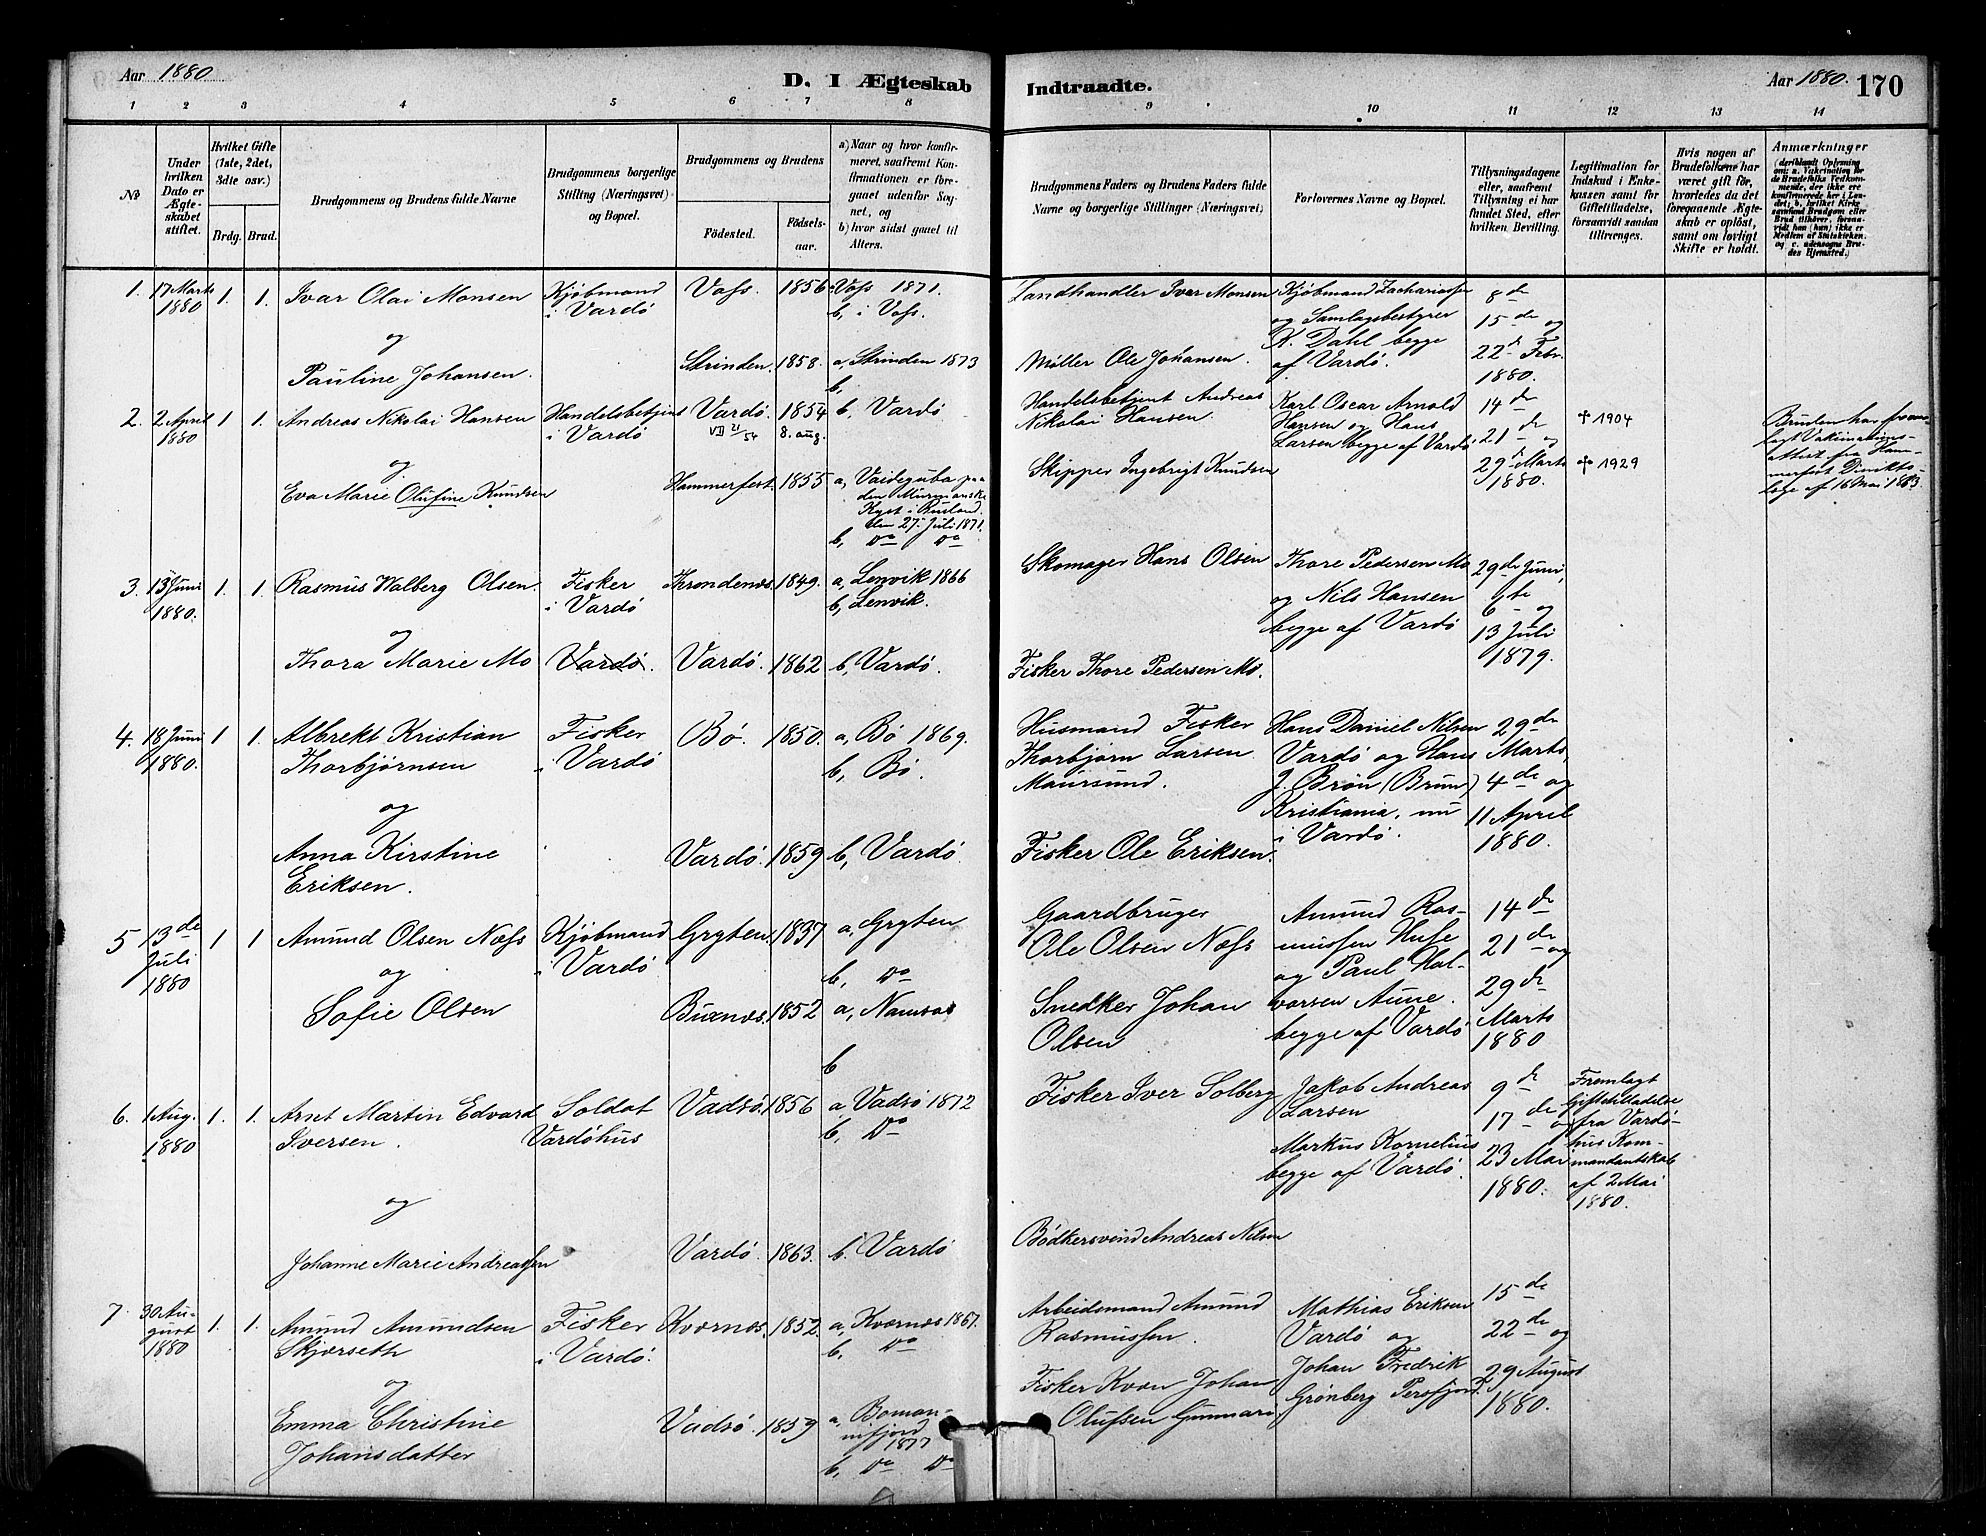 Aar 1880
D. I Ægteskab
Indtraadte.
Aar 1880. 170
1 2 3 4 5 6 7 8
9 10 11 12 13 14
№
Under hvilken Dato er Ægteskabet stiftet.
Hvilket Gifte (1ste, 2det, 3dte osv.)
Brdg. Brud.
Brudgommens og Brudens fulde Navne
Brudgommens borgerlige Stilling (Næringsvei) og Bopæl.
Brudgommens og Brudens
Fødested. Fødselsaar.
a) Naar og hvor konfirmeret, saafremt Konfirmationen er foregaaet udenfor Sognet, og
b) hvor sidst gaaet til Alters.
Brudgommens Faders og Brudens Faders fulde Navne og borgerlige Stillinger (Næringsvei)
Forlovernes Navne og Bopæl.
Tillysningsdagene eller, saafremt Tillysning ei har fundet Sted, efter hvilken Bevilling.
Legitimation for Indskud i Enkekassen samt for Giftetilladelse, forsaavidt saadan tiltrænges.
Hvis nogen af Brudefolkene har været gift før, hvorledes da det foregaaende Ægteskab er opløst, samt om lovligt Skifte er holdt.
Anmærkninger
(deriblandt Oplysning om: a. Vakcination for de Brudefolks Vedkommende, der ikke ere konfirmerede her i Landet; b. hvilket Kirkesamfund Brudgom eller Brud tilhører, forsaavidt han (hun) ikke er Medlem af Statskirken, og c. udensogns Brudes Hjemsted.)
1. 17 Marts 1880 1. 1. Ivar Olai Monsen Kjøbmand i Vardö Voss. 1856 Voss 1871.
b, i Voss.
Landhandler Iver Monsen Kjöbmand Zachariassen og Samlagsbestyrer K. Dahl begge af Vardö. 8de 15de og 22de Febr. 1880.
og
Pauline Johansen. Strinden. 1858. a, Strinden 1873
b,
Møller Ole Johansen.
2. 2 April 1880 1 1. Andreas Nikolai Hansen Handelsbetjent i Vardö Vardö. 1854 b, Vardö
VII 21/54 8. aug.
Handelsbetjent Andreas Nikolai Hansen. Karl Oscar Arnold Hansen og Hans Larsen begge af Vardö 14de 21de og 29de Marts 1880. ✝ 1904
Bruden har fremlagt Vakcinationsattest fra Hammerfest Distriktslæge af 16 Mai 1863.
og
Eva Marie Olufine Knudsen Hammerfest. 1855 a, Vaideguba paa den Murmanske Kyst i Rusland den 27. Juli 1871.
b, Do Do
Skipper Ingebrigt Knudsen ✝ 1929
3. 13 Juni 1880. 1. 1. Rasmus Walberg Olsen. Fisker i Vardö Throndenes. 1849. a, Lenvik 1866
b, Lenvik.
Skomager Hans Olsen Thore Pedersen Mo og Nils Hansen begge af Vardö 29de Juni, 6te og 13 Juli 1879.
og
Thora Marie Mo Vardö. Vardö. 1862 b, Vardö.
Fisker Thore Pedersen Mo.
4. 18 Juni 1880. 1 1. Albrekt Kristian Thorbjörnsen Fisker i Vardö Bö. 1850. a, Bö 1869.
b, Bö.
Husmand Fisker Thorbjørn Larsen Maursund. Hans Daniel Nilsen Vardö og Hans J. Brön (Brun) Kristiania, nu i Vardö. 29de Marts, 4de og 11 April 1880.
og
Anna Kirstine Eriksen. Vardö. 1859 b, Vardö.
Fisker Ole Eriksen.
5 13de Juli 1880 1 1 Amund Olsen Næss Kjöbmand i Vardö Gryten. 1837 a, Gryten
b, Do
Gaardbruger Ole Olsen Næss Amund Rasmussen Huse og Paul Halvorsen Aune. begge af Vardö 14de 21de og 29de Marts 1880
og
Sofie Olsen Buxnes. 1852 a, Namsos
b
Snedker Johan Olsen
6. 1 Aug. 1880 1. 1. Arnt Martin Edvard Iversen. Soldat Vardöhus Vadsö. 1856 a Vadsö 1872
b, Do
Fisker Iver Solberg Jakob Andreas Larsen Markus Kornelius begge af Vardö. 9de 17de og 23 Mai 1880. Fremlagt Giftetilladelse fra Vardöhus Kommandantskab af 2 Mai 1880.
og
Johanne Marie Andreassen Vardö. 1863. b. Vardö
Bödkersvend Andreas Nilsen
7. 30 August 1880 1. 1. Amund Amundsen Skjærseth Fisker i Vardö. Kværnes. 1852. a, Kværnes 1867.
b. Do
Arbeidsmand Amund Rasmussen. Mathias Eriksen Vardö og Johan Fredrik Grønberg Persfjord. 15de 22de og 29 August 1880.
og
Emma Christine Johansdatter Vadsö. 1859 a, Bomannifjord 1877
b, Do Do
Fisker Kvæn Johan Olufsen Gunnari